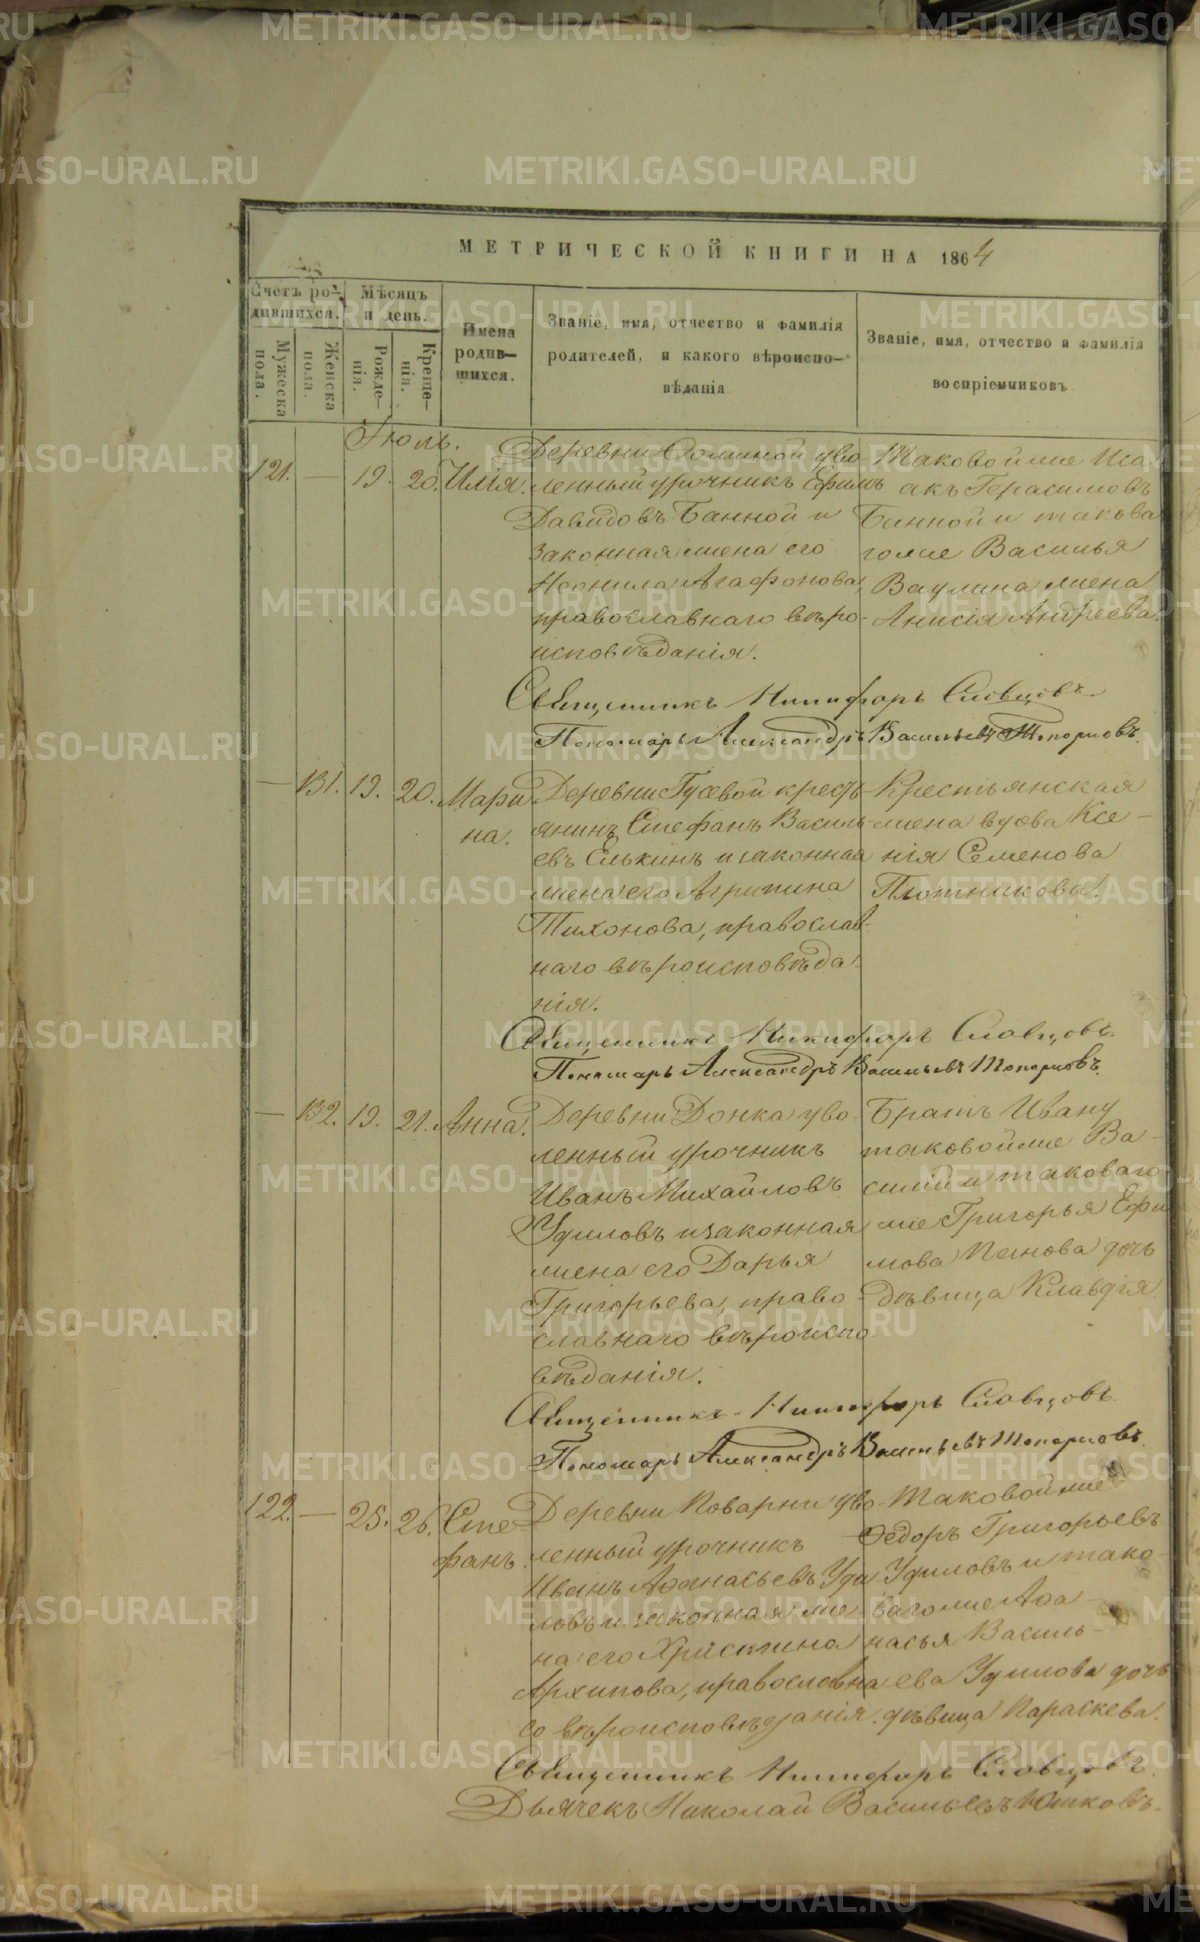 МЕТРИЧЕСКОЙ КНИГИ НА 1864
Счетъ ро-
дившихся.
Мѣсяцъ
и день.
Мужеска
пола.
Женска
пола.
Рожде-
нія.
Креще-
нія.
Имена
родив-
шихся.
Званіе, имя, отчество и фамилія
родителей, и какого вѣроиспо-
вѣданія
Званіе, имя, отчество и фамилія
воспріемниковъ
Іюль.
121. — 19. 20. Илія.
Деревни уво
ленный урочникъ Ефимъ
Давидовъ Банной и
законная жена его
Неонила Агафонова,
православнаго вѣро-
исповѣданія.
Таковой же Иса
акъ Герасимовъ
Банной и такова
гоже Василья
Ваулина жена
Анисія Андреева.
Священникъ Никифоръ Словцовъ.
Пономарь Александръ Васильевъ Топорковъ.
— 131. 19. 20. Мари
на.
Деревни Гуевой кресть
янинъ Стефанъ Василь
евъ Елькинъ и законная
жена его Агрипина
Тихонова, православ-
наго вѣроисповѣда-
нія.
Крестьянская
жена вдова Ксе-
нія Семенова
Плотникова.
Священникъ Никифоръ Словцовъ.
Пономарь Александръ Васильевъ Топорковъ.
— 132. 19. 21. Анна.
Деревни Донка уво-
ленный урочникъ
Иванъ Михайловъ
Удиловъ и законная
жена его Дарья
Григорьева, право-
славнаго вѣроиспо
вѣданія.
Братъ Ивану
таковой же Ва-
силій и таковаго
же Григорья Ефи
мова Панова дочь
дѣвица Клавдія
Священникъ Никифоръ Словцовъ.
Пономарь Александръ Васильевъ Топорковъ.
122. — 25. 26. Сте
фанъ.
Деревни Поварни уво-
ленный урочникъ
Иванъ Афанасьевъ Уди
ловъ и законная же
на его Христина
Архипова, православна
го вѣроисповѣданія.
Таковой же
Федоръ Григорьевъ
Удиловъ и тако-
ваго же Афа-
насья Василь-
ева Удилова дочь
дѣвица Параскева.
Священникъ Никифоръ Словцовъ.
Дьячекъ Николай Васильевъ
METRIKI.GASO-URAL.RU